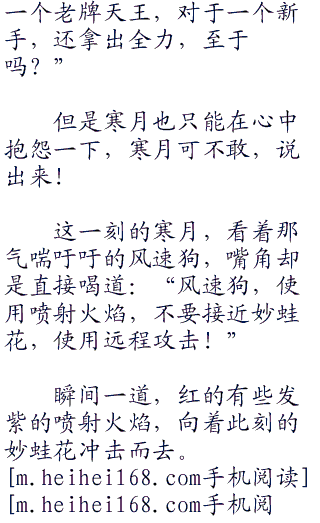 一个老牌天王，对于一个新
手，还拿出全力，至于
吗？”
但是寒月也只能在心中
抱怨一下，寒月可不敢，说
出来！
这一刻的寒月，看着那
气喘吁吁的风速狗，嘴角却
是直接喝道：“风速狗，使
用喷射火焰，不要接近妙蛙
花，使用远程攻击！”
瞬间一道，红的有些发
紫的喷射火焰，向着此刻的
妙蛙花冲击而去。
[m.heihei168.com手机阅读]
[m.heihei168.com手机阅